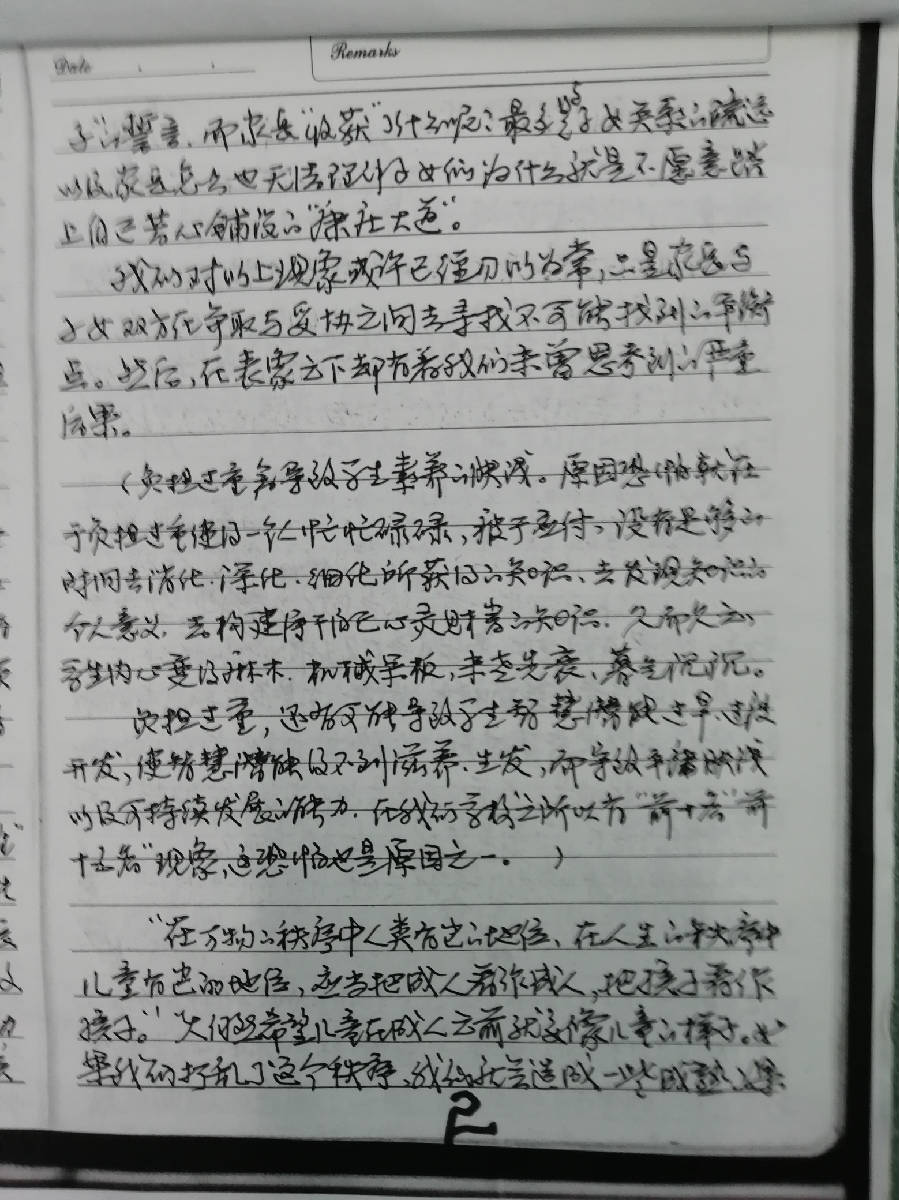 Date
Remarks
子”的誓言。而家长“收获”了什么呢？最多是与子女关系的疏远
以及家长怎么也无法理解子女们为什么就是不愿意踏
上自己苦心铺设的“康庄大道”。
我们对以上现象或许已经习以为常，只是家长与
子女双方在争取与妥协之间去寻找不可能找到的平衡
点。然后，在表象之下却有着我们未曾思考到的严重
后果。
（负担过重会导致学生素养的快浅。原因恐怕就在
于负担过重使得一个人忙忙碌碌，疲于应付，没有足够的
时间去消化、深化、细化所获得的知识、去发现知识的
个人意义，去构建属于自己心灵财富的知识。久而久之，
学生内心变得麻木、机械呆板，未老先衰，暮气沉沉。
负担过重，还有可能导致学生智慧潜能过早、过度
开发，使智慧潜能得不到滋养、生发，而导致
以及可持续发展的能力。在我们学校之所以有“前十名”“前
十五名”现象，这恐怕也是原因之一。）
“在万物的秩序中人类有它的地位，在人生的秩序中
儿童有它的地位，应当把成人看作成人，把孩子看作
孩子。”“大自然希望儿童在成人之前就要像儿童的样子。如
果我们打乱了这个秩序，我们就会造成一些早熟的果
2